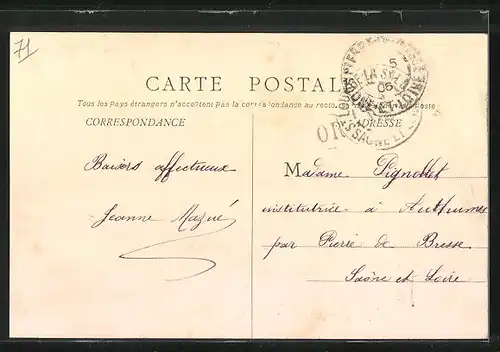 71
CARTE POSTALE
Tous les Pays étrangers n'acceptent pas la correspondance au recto
CORRESPONDANCE
ADRESSE
OR
Baisers affectueux
Jeanne Mazué
Madame Pignollet
institutrice à Authumes
par Pierre de Bresse
Saône et Loire